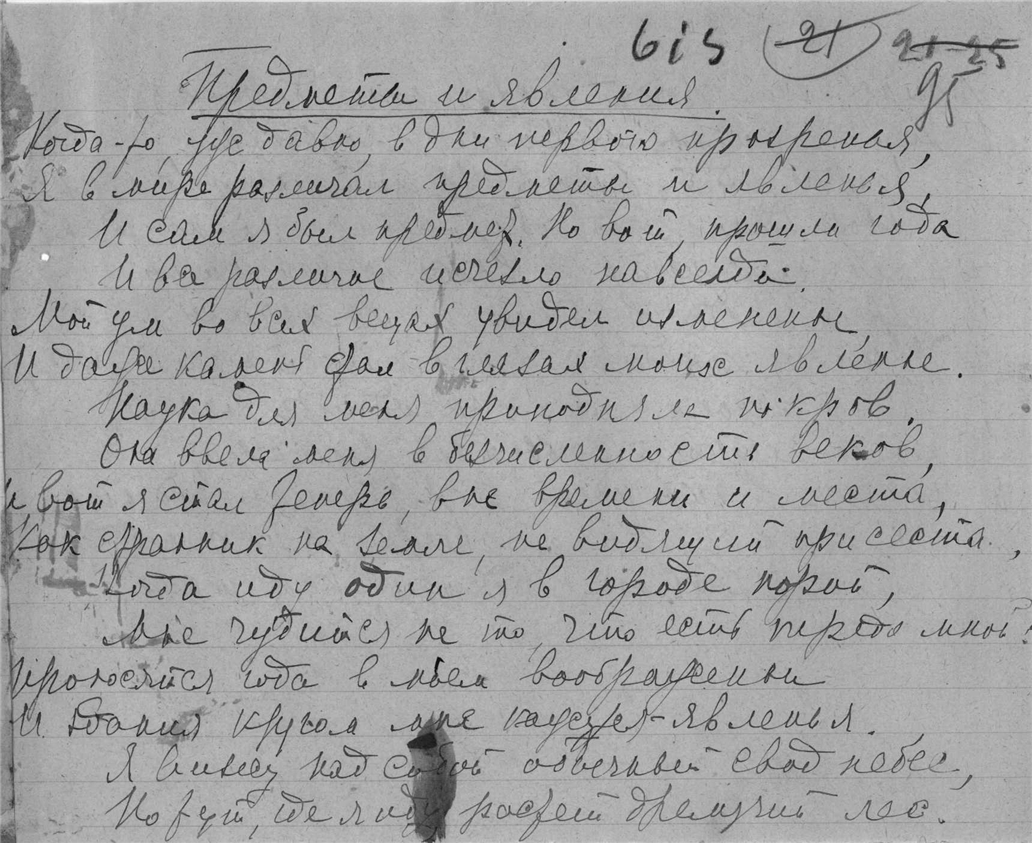 bis 21 21-25
95
Предметы и явления.
Когда-то, уже давно, в дни первого прозренья,
Я в мире различал предметы и явленья,
И сам я был предмет. Но вот, прошли года
И все различие исчезло навсегда.
Мой ум во всех вещах увидел измененье
И даже камень стал в глазах моих явленье.
Наука для меня приподняла покров,
Она ввела меня в бесчисленность веков,
И вот я стал теперь, вне времени и места,
Как странник на земле, не видящий присеста,
Когда иду один я в городе порой,
Мне чудится не то, что есть передо мной:
Проносятся года в моем воображеньи
И здания кругом мне кажутся-явленья.
Я вижу над собой обычный свод небес,
Но тут, где я иду растет дремучий лес.